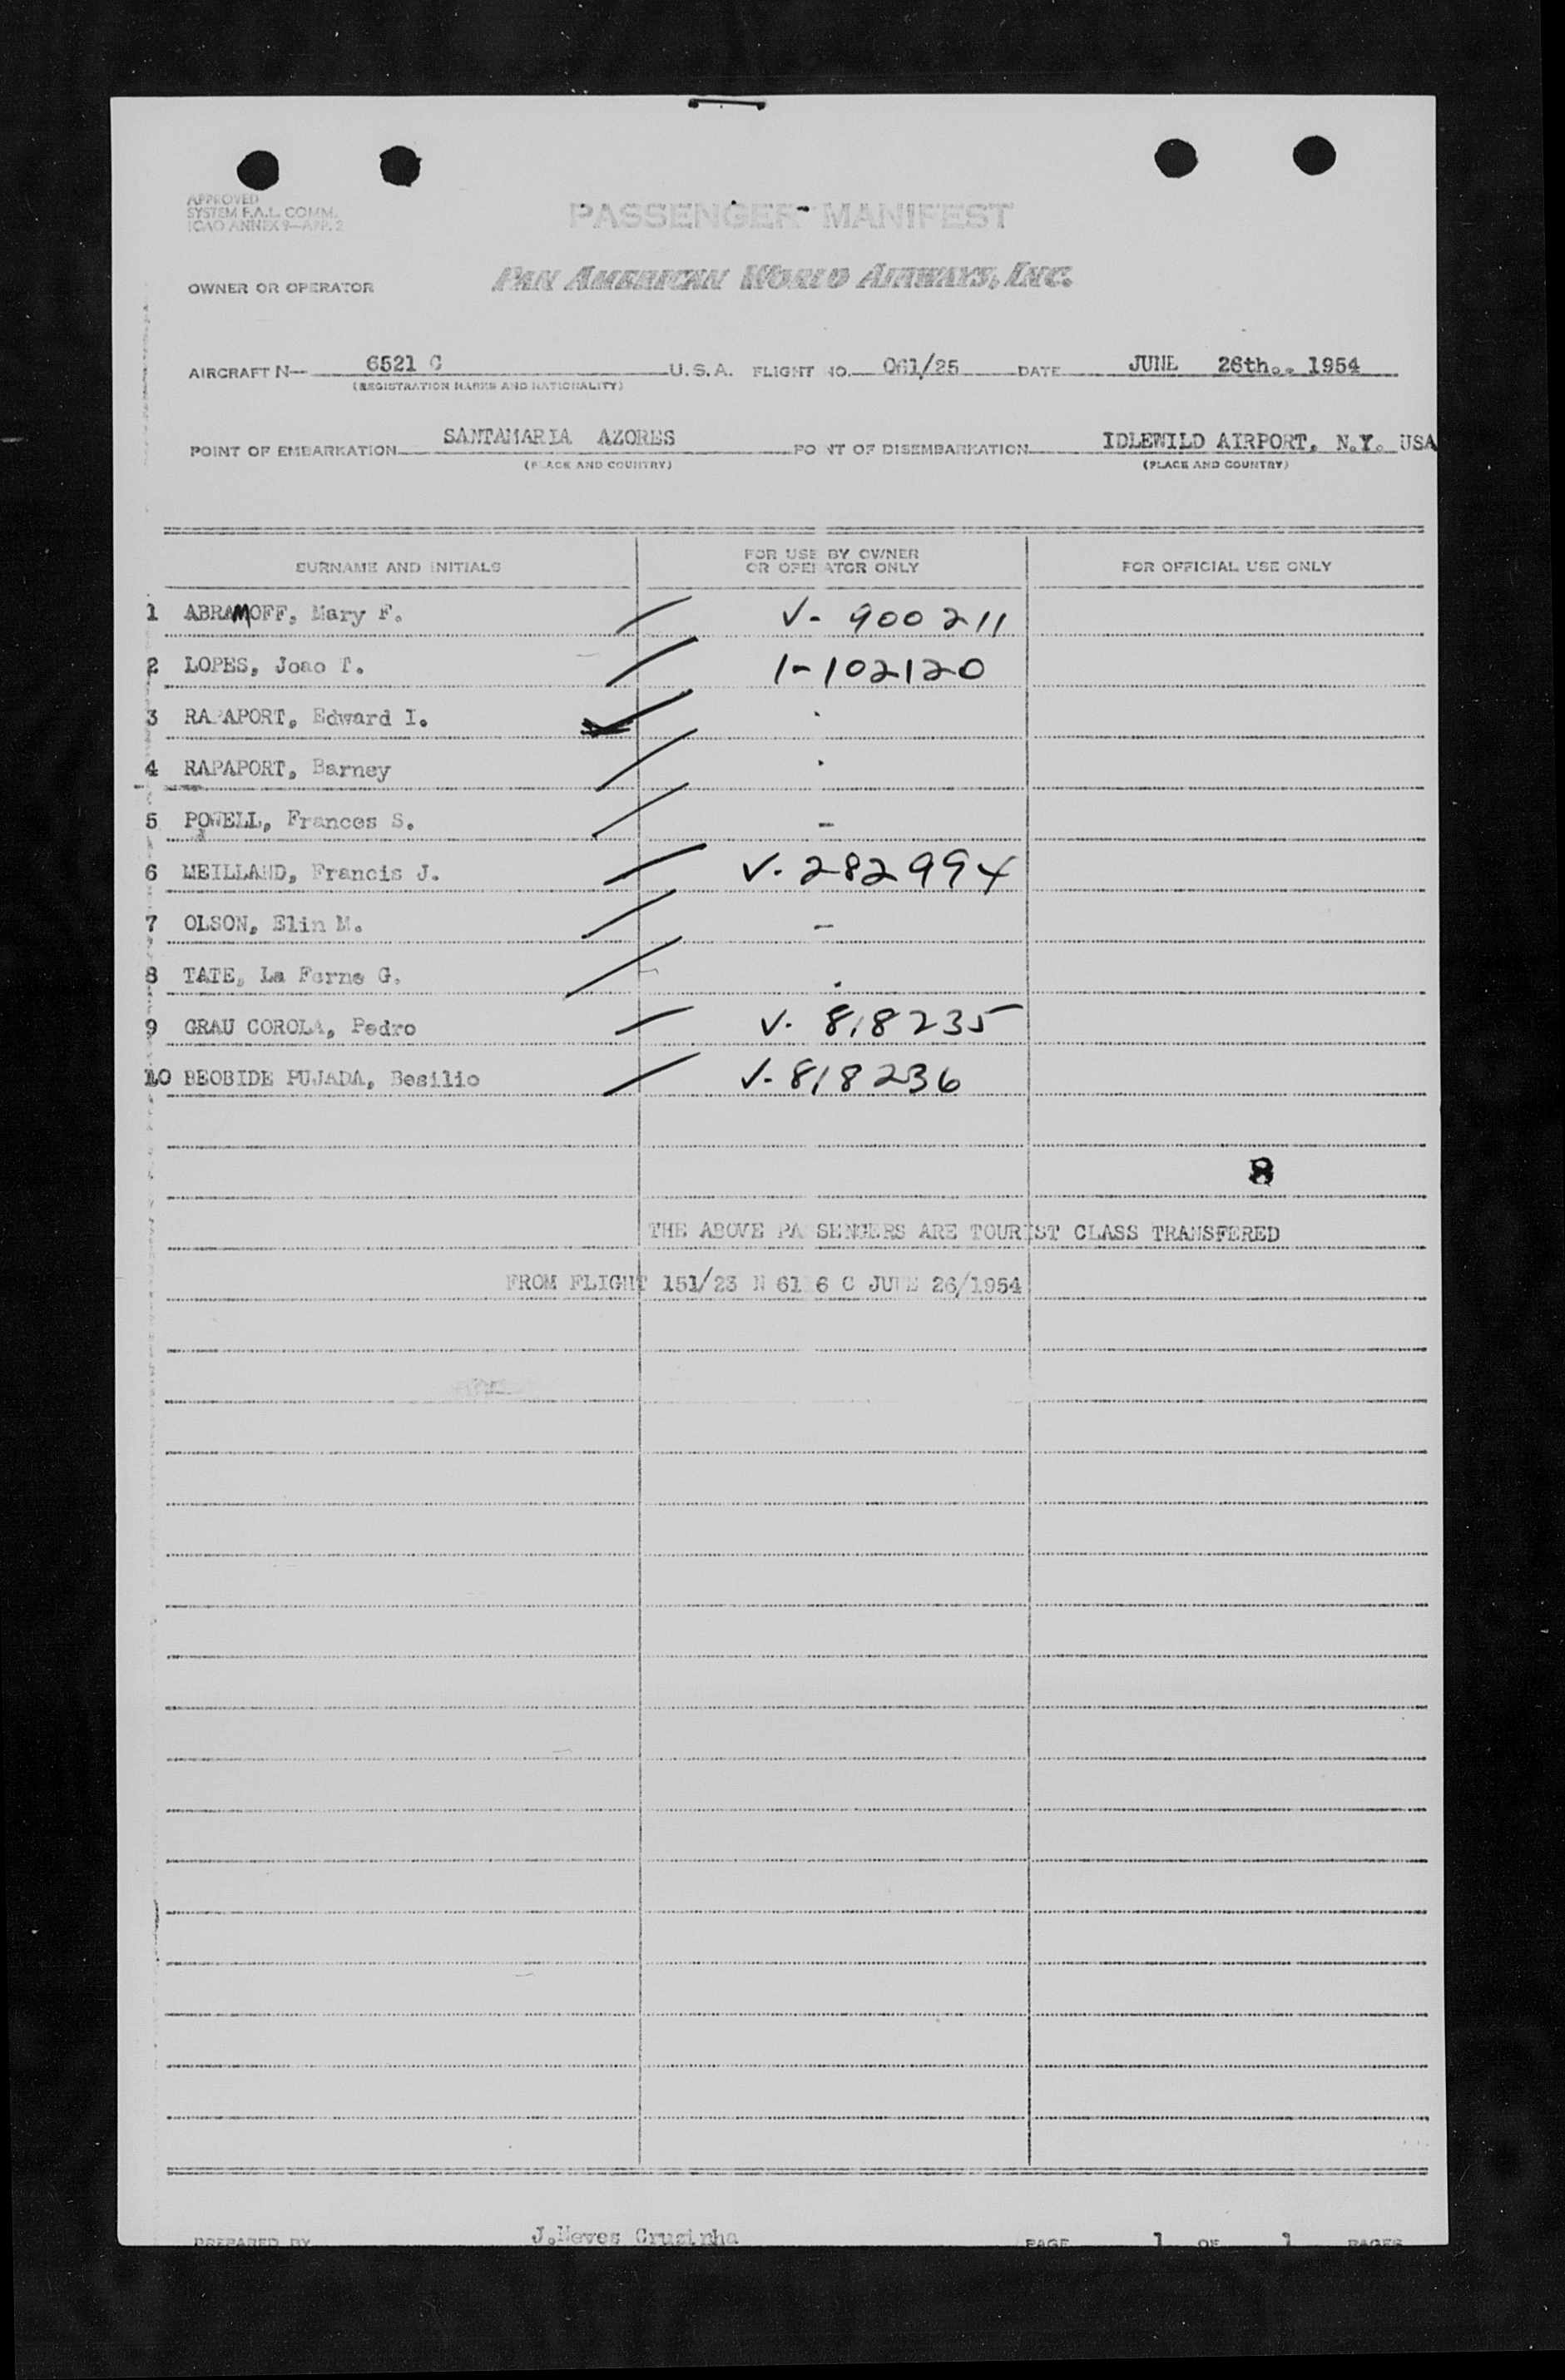 APPROVED
SYSTEM F.A.L. COMM.
ICAO ANNEX 9—APP. 2
PASSENGER MANIFEST
OWNER OR OPERATOR PAN AMERICAN WORLD AIRWAYS, INC.
AIRCRAFT N— 6521 C U.S.A. FLIGHT NO. 061/25 DATE JUNE 26th.. 1954
(REGISTRATION MARKS AND NATIONALITY)
POINT OF EMBARKATION SANTAMARIA AZORES POINT OF DISEMBARKATION IDLEWILD AIRPORT, N.Y. USA
(PLACE AND COUNTRY) (PLACE AND COUNTRY)
SURNAME AND INITIALS FOR USE BY OWNER OR OPERATOR ONLY FOR OFFICIAL USE ONLY
1 ABRAMOFF, Mary F. V- 900211
2 LOPES, Joao T. 1-102120
3 RAPAPORT, Edward I.
4 RAPAPORT, Barney
5 POWELL, Frances S. -
6 MEILLAND, Francis J. V-282994
7 OLSON, Elin M. -
8 TATE, La Ferne G.
9 GRAU COROLA, Pedro V- 818235
10 BEOBIDE PUJADA, Besilio V-818236
8
THE ABOVE PASSENGERS ARE TOURIST CLASS TRANSFERED
FROM FLIGHT 151/23 N 61 6 C JUNE 26/1954
PREPARED BY J.Neves Cruzinha PAGE 1 OF 1 PAGES